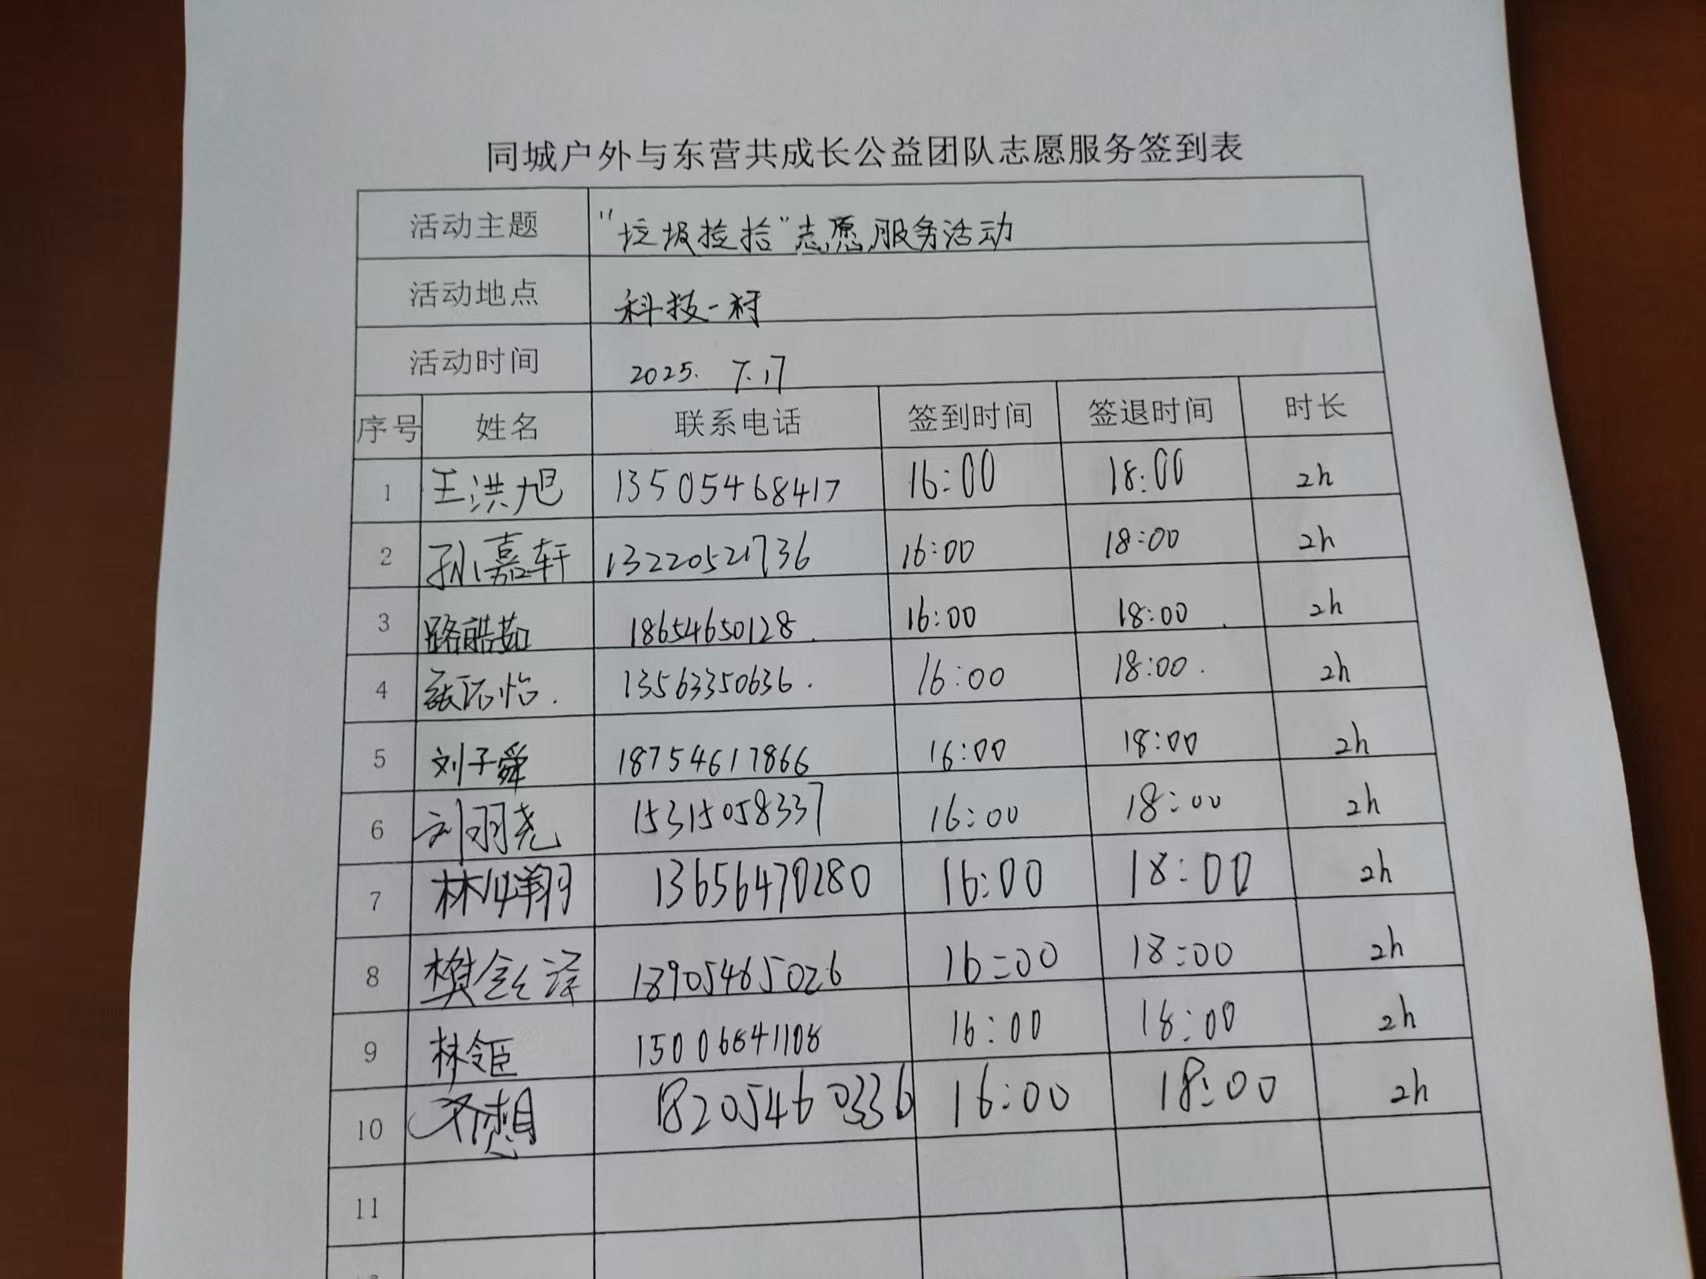 同城户外与东营共成长公益团队志愿服务签到表
活动主题 "垃圾捡拾"志愿服务活动
活动地点 科技一村
活动时间 2025. 7.17
序号 姓名 联系电话 签到时间 签退时间 时长
1 王洪旭 13505468417 16:00 18:00 2h
2 孙嘉轩 13220521736 16:00 18:00 2h
3 路皓茹 18654650128. 16:00 18:00. 2h
4 怡. 13563350636. 16:00 18:00. 2h
5 刘子舜 18754617866 16:00 18:00 2h
6 刘羽尧 15315058337 16:00 18:00 2h
7 林翔 13656470280 16:00 18:00 2h
8 樊金泽 18905465026 16:00 18:00 2h
9 林 15006841108 16:00 18:00 2h
10 想 18205460336 16:00 18:00 2h
11